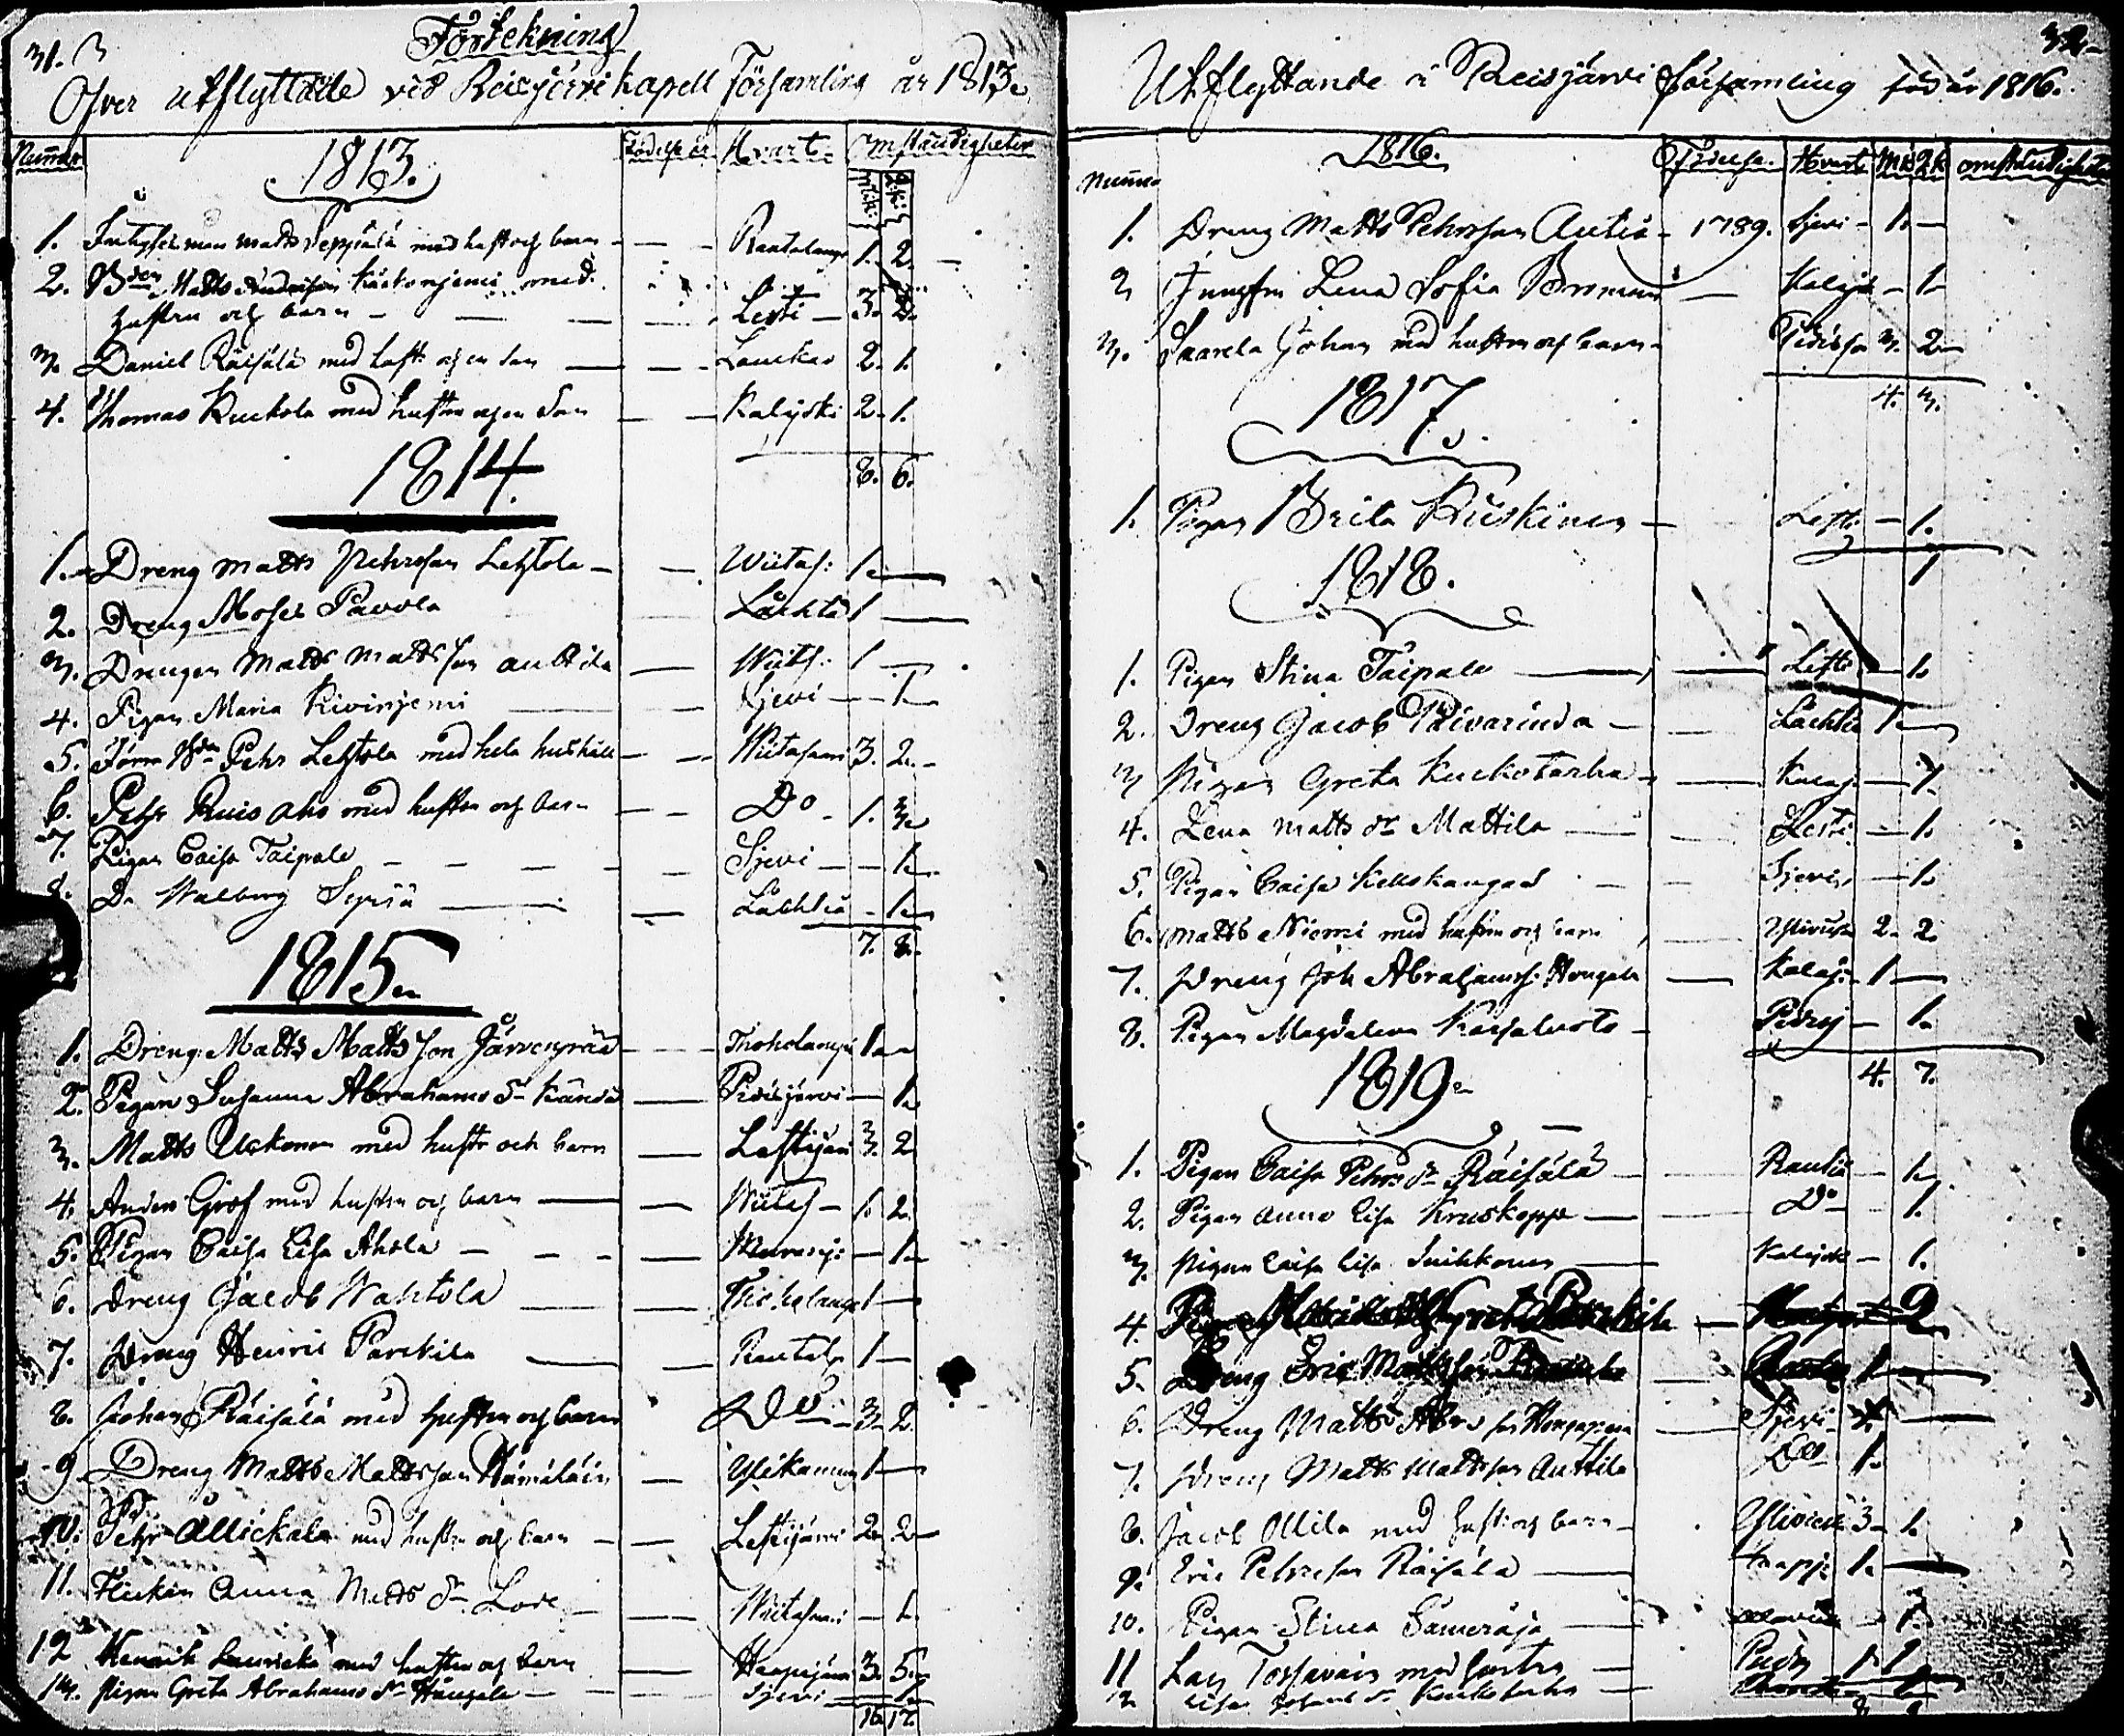 31.
Förtekning
Öfver utflyttade vid Reisjärvi kapell Församling år 1813.
Num̄er 1813. Födelse år Hvart. Omständigheter
1. man Matts Seppälä med hust och barn Rautalamp 1. 2.
2. Matts Andersson Kärkonjemi med
hustru och barn Lesti 3. 2.
3. Daniel Räisälä med hust. och en son Lauckas 2. 1.
4. Thomas Kuckola med hustru och en Son Kalajoki 2. 1.
8. 6.
1814.
1. Dreng Matts Pehrsson Lehtola Wiitas: 1.
2. Dreng Moses Pavola Lächtä 1
3. Drengen Matts Mattsson Anttila Wiits: 1
4. Pigan Maria Kivinjemi Sjevi 1
5. Förra Pehr Lehtola med hela hushåll Wiitasaari 3. 2.
6. Pehr Ruis aho med hustru och barn Do 1. 3.
7. Pigan Caisa Taipale Sjevi 1.
8. Do Walborg Seppä Lächtä 1.
7. 8.
1815.
1. Dreng Matts Mattsson Järvenpää Thoholampi 1.
2. Pigan Susanna Abrahams dr Kända Pidisjärvi 1.
3. Matts Uckonen med hustr och barn Lestijärvi 3. 2
4. Anders Grof med hustru och barn Wiitas 1. 2.
5. Pigan Caisa Lisa Ahola 1.
6. Dreng Jacob Wahtola Thoholamp 1
7. Dreng Henric Parckila Rautal 1
8. Johan Räisälä med hustru och barn Do 3. 2.
9 Dreng Matts Mattsson Hämäläin Ylikannus 1
10. Pehr Ollickala med hustru och barn Lestijärvi 2. 2
11. Flickan Anna Matts dr Lore Wiitasaari 1.
12 Henrik Lauricka med hustru och barn Haapajärvi 3. 5.
13. Pigan Greta Abrahams dr Hängala Sjevi 1.
16. 17.
32
Utflyttande i Reisjärvi församling för år 1816.
Num̄er 1816. Födelse. Hvart Mk Qk omständigheter
1. Dreng Matts Pehrsson Autio 1789. Sjevi 1.
2 Jungfru Lena Sofia Broman Kalajo 1
3. Saarela Johan med hustru och barn Pidisja 3. 2
4. 3.
1817.
1. Pigan Brita Kuiskinen Lesti 1.
1
1818.
1. Pigan Stina Taipale Lesti 1.
2. Dreng Jacob Päivärinda Lächtä 1.
3 Pigan Greta Kuckotarha Kalaj. 1.
4. Lena Matts dr Mattila Lesti 1.
5. Pigan Caisa Kellokangas Sjevi 1.
6. Matts Niemi med hustru och barn Ylivieska 2. 2.
7. Dreng Joh Abrahamss: Hongala Kalaj. 1
8. Pigan Magdalena Karjaluoto Pidisj 1.
4. 7.
1819.
1. Pigan Caisa Pehrs dr Räisälä Rautio 1.
2. Pigan Anna Lisa Kruskopp Do 1.
3. Pigan Caisa Lisa Suikkonen Kalajoki 1.
4. 2
5. Dreng Eric Mattsson 1
6. Dreng Matts Sjevi
7. Dreng Matts Mattsson Anttila Do 1.
8. Jacob Ollila med hust. och barn Ylivieska 3 1.
9. Eric Pehrsson Räisälä Haapj: 1.
10. Pigan Stina 1.
11 Lars Torfvain med hustru 1. 1
12 Lisa Johans dr Kuckotarha